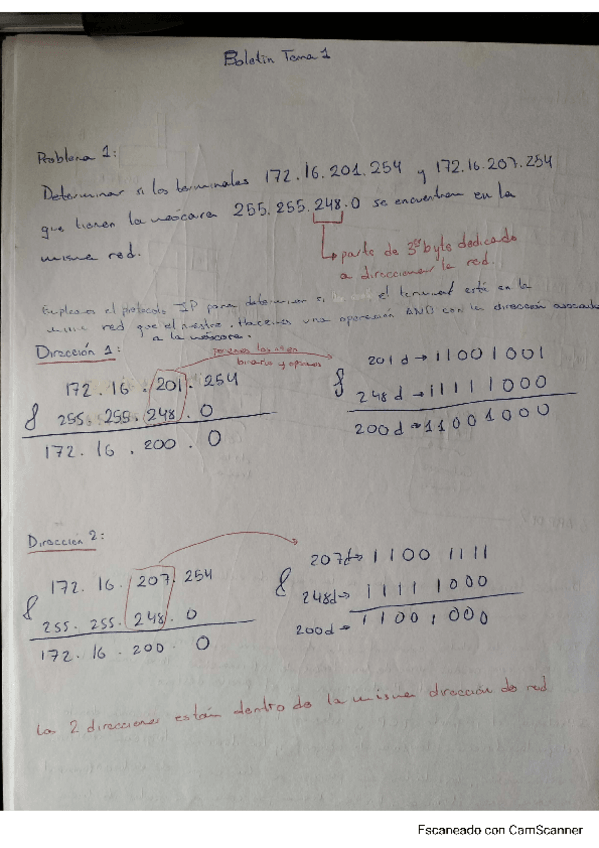 Boletín Tema 1
Problema 1:
Determinar si los terminales 172.16.201.254 y 172.16.207.254
que tienen la máscara 255.255.248.0 se encuentran en la
misma red.
parte de 3er byte dedicado
a direccionar la red.
Empleamos el protocolo IP para determinar si el terminal está en la
misma red que el nuestro. Hacemos una operación AND con la dirección asociada
a la máscara.
Dirección 1:
ponemos los nos en
binario y operamos
172.16.201.254
& 255.255.248.0
172.16.200.0
201d → 11001001
& 248d → 11111000
200d → 11001000
Dirección 2:
172.16.207.254
& 255.255.248.0
172.16.200.0
207d → 1100 1111
& 248d → 1111 1000
200d → 1100 1000
Las 2 direcciones están dentro de la misma dirección de red
Escaneado con CamScanner